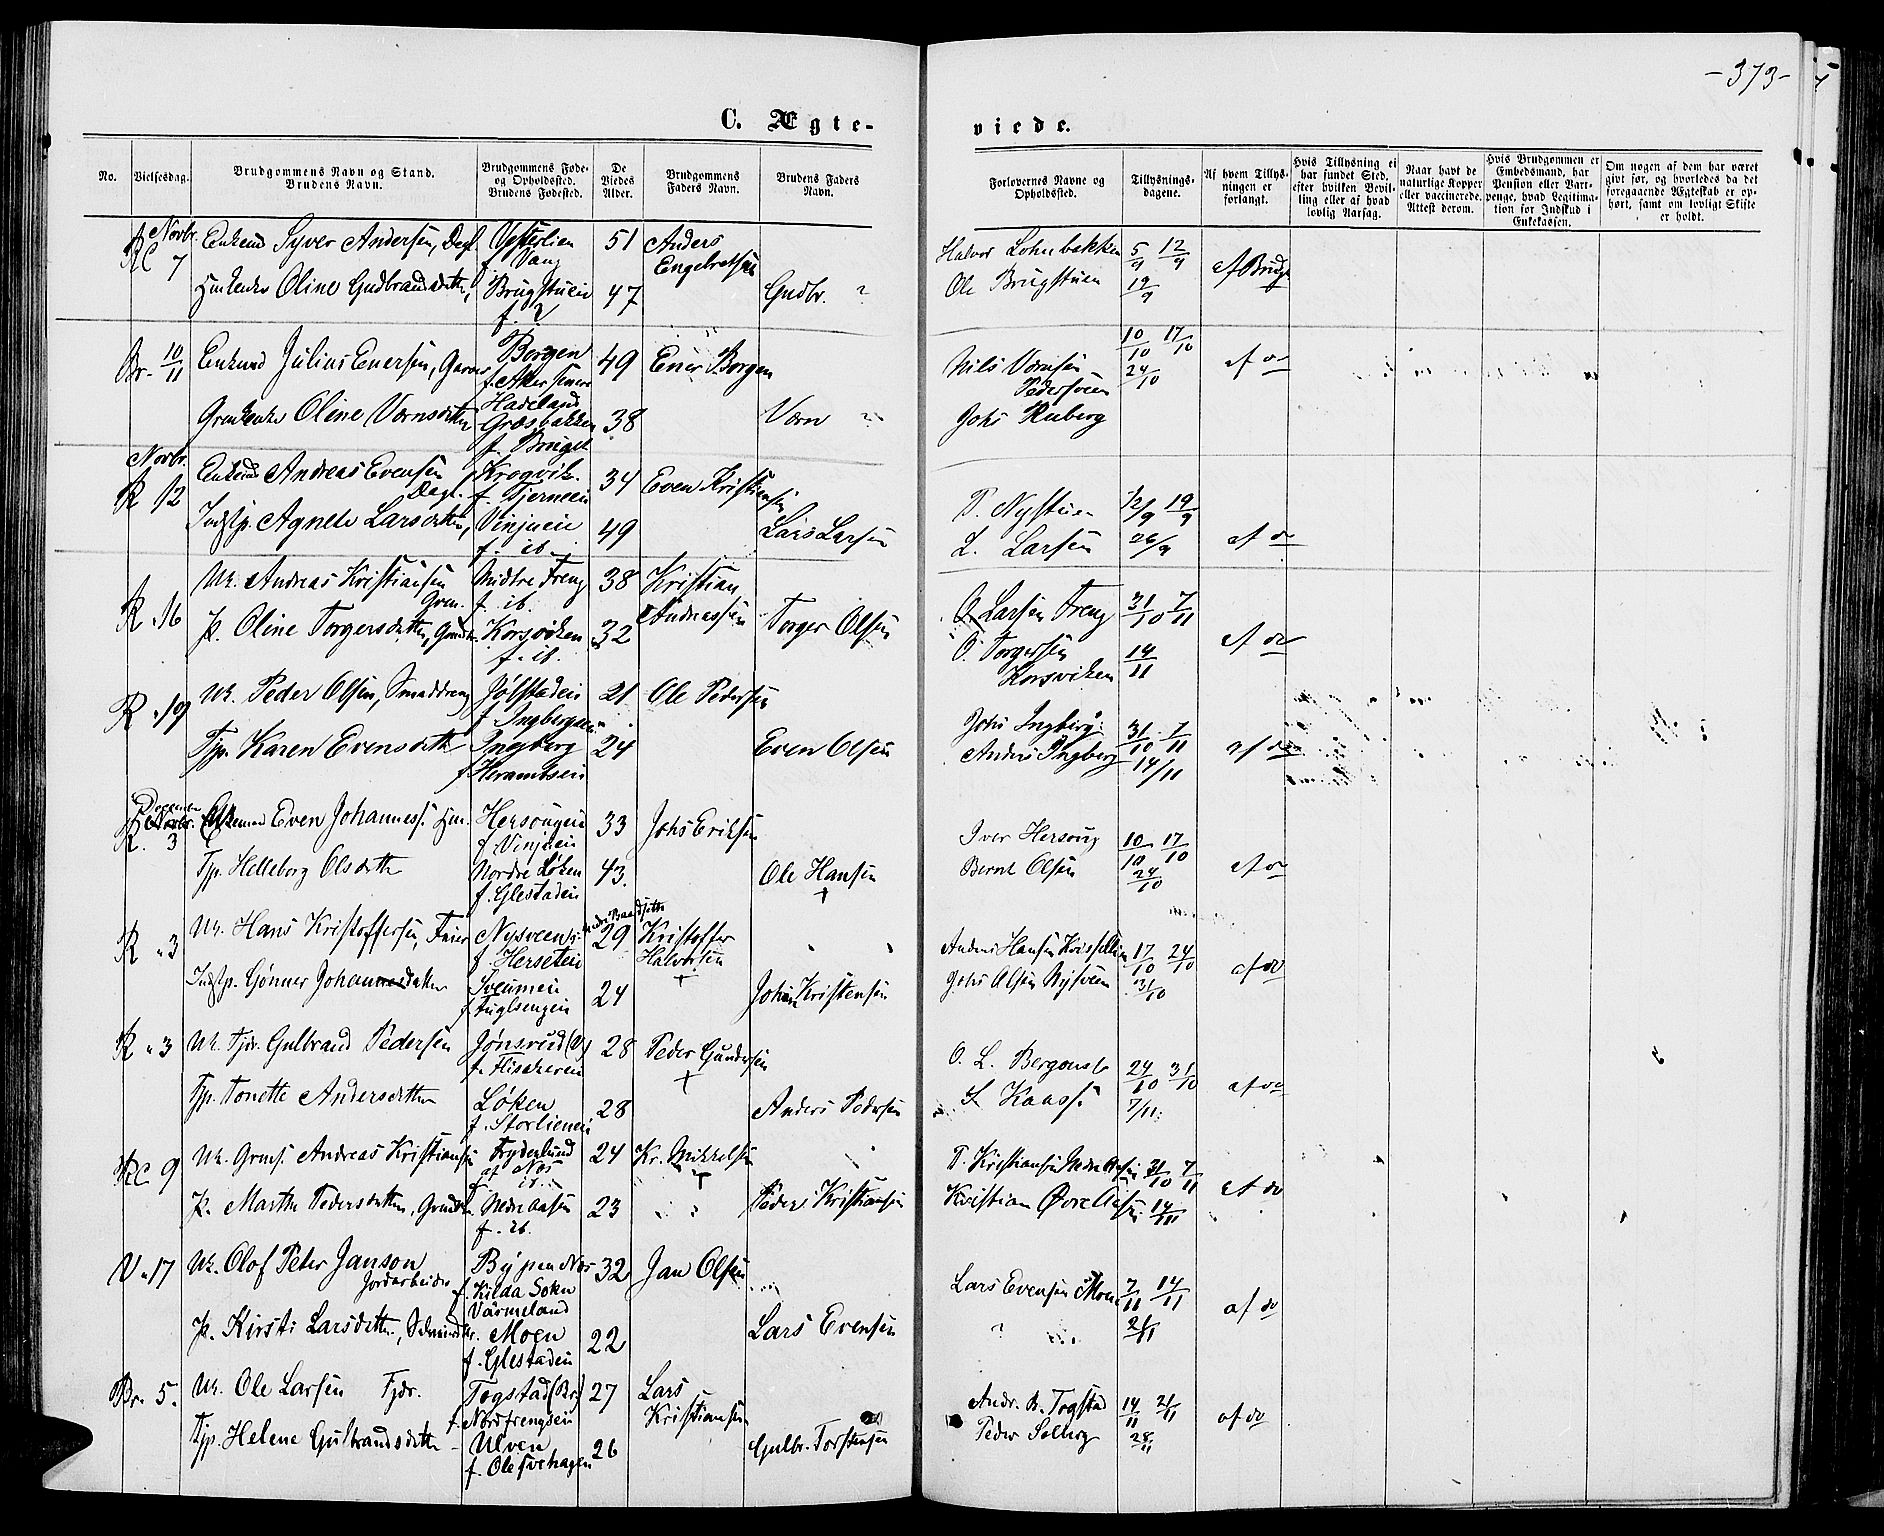 -373-
C. Ægte-
viede.
No.
Vielsesdag.
Brudgommens Navn og Stand.
Brudens Navn.
Brudgommens Føde-
og Opholdssted.
Brudens Fødested.
De
Viedes
Alder.
Brudgommens
Faders Navn.
Brudens Faders
Navn.
Forlovernes Navne og
Opholdssted.
Tillysnings-
dagene.
Af hvem Tillys-
ningen er
forlangt.
Hvis Tillysning ei
har fundet Sted,
efter hvilken Bevil-
ling eller af hvad
lovlig Aarsag.
Naar havt de
naturlige Kopper
eller vaccinerede.
Attest derom.
Hvis Brudgommen er
Embedsmand, har
Pension eller Vart-
penge, hvad Legitima-
tion for Indskud i
Enkekassen.
Om nogen af dem har været
gift før, og hvorledes da det
foregaaende Ægteskab er op-
hørt, samt om lovligt Skifte
er holdt.
Novbr.
RC 7
Enkemd Syver Andersen, Dagl.
Vesterlien
f. Vang
51
Anders
Engebretsen
Oline Gudbrandsdatter,
Brugstuen
f. ?
47
Gudbr. ?
Halvor Lohnbakken
Ole Brugstuen
5/9 12/9
19/9
af Brudg.
Br. 10/11
Enkemd Julius Enersen, Gaardm.
Borgen
49
Ener Borgen
Hadeland
Oline Værnsdatter
Græsbakken
f. Bruget
38
Værn "
Nils Værnsen
Pedersveen
Johs Ruberg
10/10 17/10
24/10
af do
Novbr.
R 12
Enkemd Andreas Evensen
Dagl.
Krogvik.
f. Tjerneeie
34
Even Kristiansen
Indstp. Agnete Larsdatter,
Vinjueie
f. ib.
49
Lars Larsen
P. Nystuen
L. Larsen
12/9 19/9
26/9
af do
R "16
Uk. Andreas Kristiansen
Grm.
Midtre Freng
f. ib.
38
Kristian
Andreassen
P. Oline Torgersdatter,
Korsviken
f. ib.
32
Torger Olsen
O. Larsen Freng
O. Torgersen
Korsviken
31/10 7/11
14/11
af do
R "19
Uk. Peder Olsen, Smeddreng
Jølstadeie
f. Ingbergseie
21
Ole Pedersen
Tjp. Karen Evensdatter
Ingberg
24
Even Olsen
Johs Ingberg
Anders Ingberg
31/10 7/11
14/11
af do
December
R. 3
Enkemd Even Johanness.
Hersougeie
f. Vinjueie
33
Johs Eriksen
Tjp. Helleborg Olsdatter
Nordre Løken
f. Glestadeie
43.
Ole Hansen
+
Iver Hersoug
Bernt Olsen
10/10 17/10
24/10
af do
R "3
Uk. Hans Kristoffersen, Feier
Nysveen
f. Herseteie
29
Kristoffer
Halvorsen
+
Indstp. Gønner Johannesdatter
Sveumeie
f. Fuglsengeie
24
Johan Kristensen
Anders Hansen
Johs Olsen Nysveen
17/10 24/10
31/10
af do
R "3
Uk. Tjdr. Gulbrand Pedersen
Jønsrud (V)
f. Flisakereie
28
Peder Gundersen
+
Tjp. Tonette Andersdatter
Løken
f. Storlieneie
28
Anders Pedersen
O. L. Bergoust
24/10 31/10
7/11
af do
RC 9
Uk. Grms. Andreas Kristiansen
Frydenlund
af Næs
f. ib.
24
Kr. Mikkelsen
+
P. Marthe Pedersdatter,
Nedre Aasen
f. ib.
23
Peder Kristiansen
P. Kristiansen Nedre Aasen
Kristian Øvre Aasen
31/10 7/11
14/11
af do
V "17
Uk. Olof Peter Janson
Jordarbeider
By paa Næs
f. Kilda Sokn
Värmeland
32
Jan Olsen
P. Kirsti Larsdatter,
Moen
f. Glestadeie
22
Lars Evensen
Lars Evensen Moen
7/11 14/11
21/11
af do
Br. 5.
Uk. Ole Larsen Tjdr.
Togstad (Br.)
f. Nordfrengseie
27
Lars
Kristiansen
Tjp. Helene Gulbrandsdatter
Ulven
f. Olesvehagen
26
Gulbr. Torstensen
Andr. B. Togstad
Peder Solberg
14/11 21/11
28/11
af do